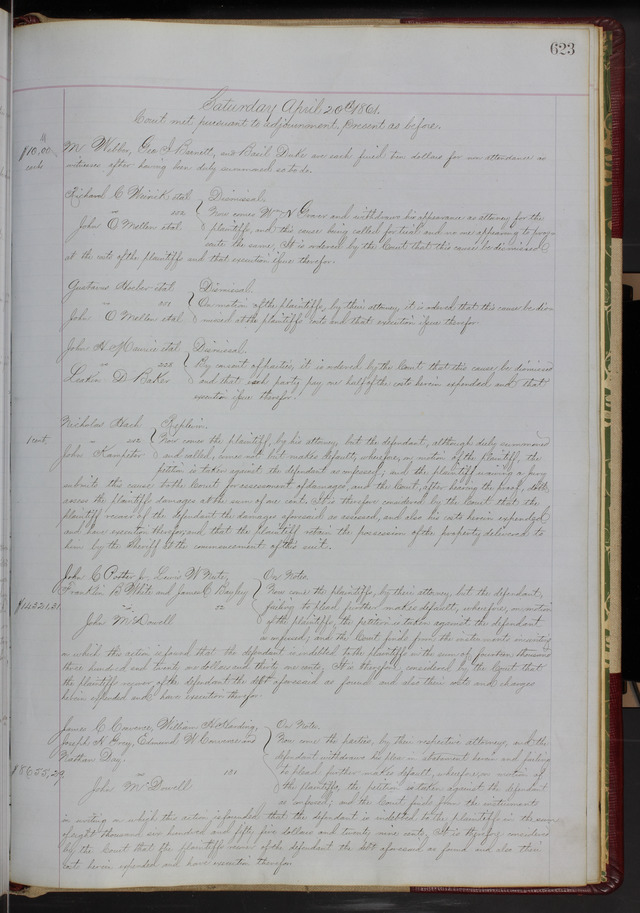 623
Saturday April 20th 1861.
Court met pursuant to adjournment, Present as before.
$10.00 each
Geo I Barnett, and Basil Duke are each fined ten dollars for non attendance as
witnesses after having been duly summoned so to do.
Richard C et al Dismissal.
vs Now comes Wm N Grover and withdraws his appearance as attorney for the
John O et al. plaintiffs, and this cause being called for trial and no one appearing to prose-
cute the same, It is ordered by the Court that this cause be dismissed
at the costs of the plaintiffs and that execution issue therefor.
Gustavus et al Dismissal.
vs On motion of the plaintiffs, by their attorney, it is ordered that this cause be dis-
John O et al. missed at the plaintiffs costs and that execution issue therefor.
John H et al Dismissal.
vs By consent of parties, it is ordered by the Court that this cause be dismissed
D Baker and that each party pay one half of the costs herein expended and that
execution issue therefor.
Nicholas Replevin.
1 cent. vs Now comes the plaintiff, by his attorney, but the defendant, although duly summoned
John and called, comes not but makes default; wherefore, on motion of the plaintiff, the
petition is taken against the defendant as confessed; and the plaintiff waiving a jury
submits this cause to the Court for assessment of damages, and the Court, after hearing the proof, doth
assess the plaintiff damages at the sum of one cent. It is therefore considered by the Court that the
plaintiff recover of the defendant the damages aforesaid as assessed, and also his costs herein expended
and have execution therefor, and that the plaintiff retain the possession of the property delivered to
him by the Sheriff at the commencement of this suit.
John C Lewis W On Note.
Franklin B White and James C Bayley Now come the plaintiffs, by their attorney, but the defendant,
failing to plead further makes default; wherefore, on motion
John McDowell of the plaintiffs, the petition is taken against the defendant
as confessed; and the Court finds from the instruments in writing
on which this action is founded that the defendant is indebted to the plaintiffs in the sum of fourteen thousand
three hundred and twenty one dollars and thirty one cents, It is therefore considered by the Court that
the plaintiffs recover of the defendant the debt aforesaid as found and also their costs and charges
herein expended and have execution therefor.
James C Converse, William H Harding, On Note.
Joseph N Edmund W Converse and Now come the parties, by their respective attorneys, and the
Nathan Day. defendant withdraws his plea or statement herein and failing
$8655,29 to plead further makes default, wherefore, on motion of
John McDowell the plaintiffs, the petition is taken against the defendant
as confessed; and the Court finds from the instruments
in writing on which this action is founded that the defendant is indebted to the plaintiffs in the sum
of eight thousand six hundred and fifty five dollars and twenty nine cents, It is therefore considered
by the Court that the plaintiffs recover of the defendant the debt aforesaid as found and also their
costs herein expended and have execution therefor.